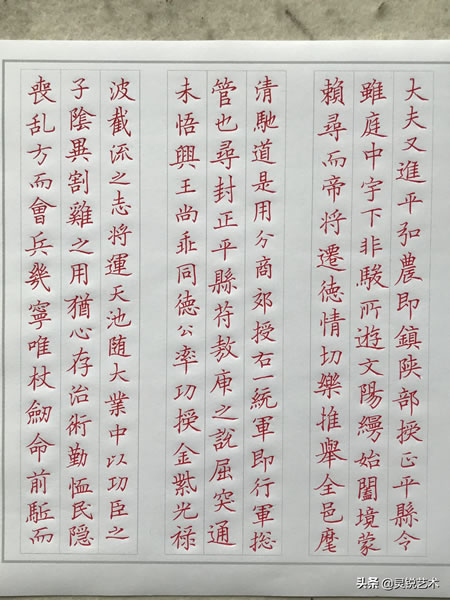 大夫又進平弘農即鎮陝部授正平縣令
雖庭中宇下非駿所遊文陽縵始闔境蒙
賴尋而帝将遷德情切樂推舉全邑麾
清馳道是用分商郊授右一統軍即行軍捴
管也尋封正平縣苻敖庫之說屈突通
未悟興王尚乖同德公率功授金紫光禄
波截流之志将運天池随大業中以功臣之
子陰異割雞之用猶心存治術勤恤民隐
喪乱方而會兵幾寧唯杖劒命前駈而
头条 @灵锐艺术